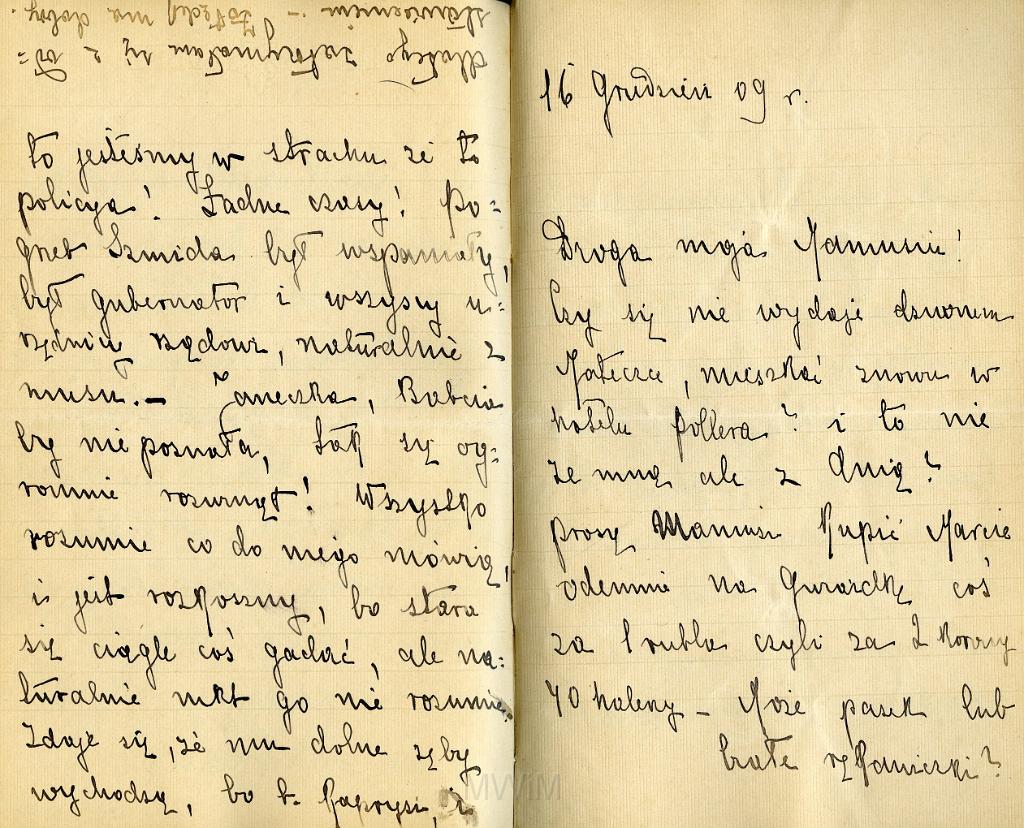 dlatego zatrzymałam się z od=
stawieniem – żołędzi na dobry.
to jesteśmy w strachu że to
policya! Ładne czasy! Po=
grzeb Szmida był wspaniały,
był gubernator i wszyscy u=
rzędnicy rządowi, naturalnie z
musu. – Janeczka, Babcia
by nie poznała, tak się og=
romnie rozwinął! Wszystko
rozumie co do niego mówią,
i jest rozkoszny, bo stara
się ciągle coś gadać, ale na=
turalnie nikt go nie rozumie.
Zdaje się, że mu dolne zęby
wychodzą, bo b. kaprysi, i
16 Grudzień 09 r.
Droga moja Mamusiu!
Czy się nie wydaje dziwnem
Mateczce, mieszkać znowu w
hotelu Pollera? i to nie
ze mną ale z Anią?
proszę Mamusi kupić Marcie
odemnie na Gwiazdkę coś
za 1 rubla czyli za 2 korony
40 halerzy – Może pasek lub
białe rękawiczki?
MWIM